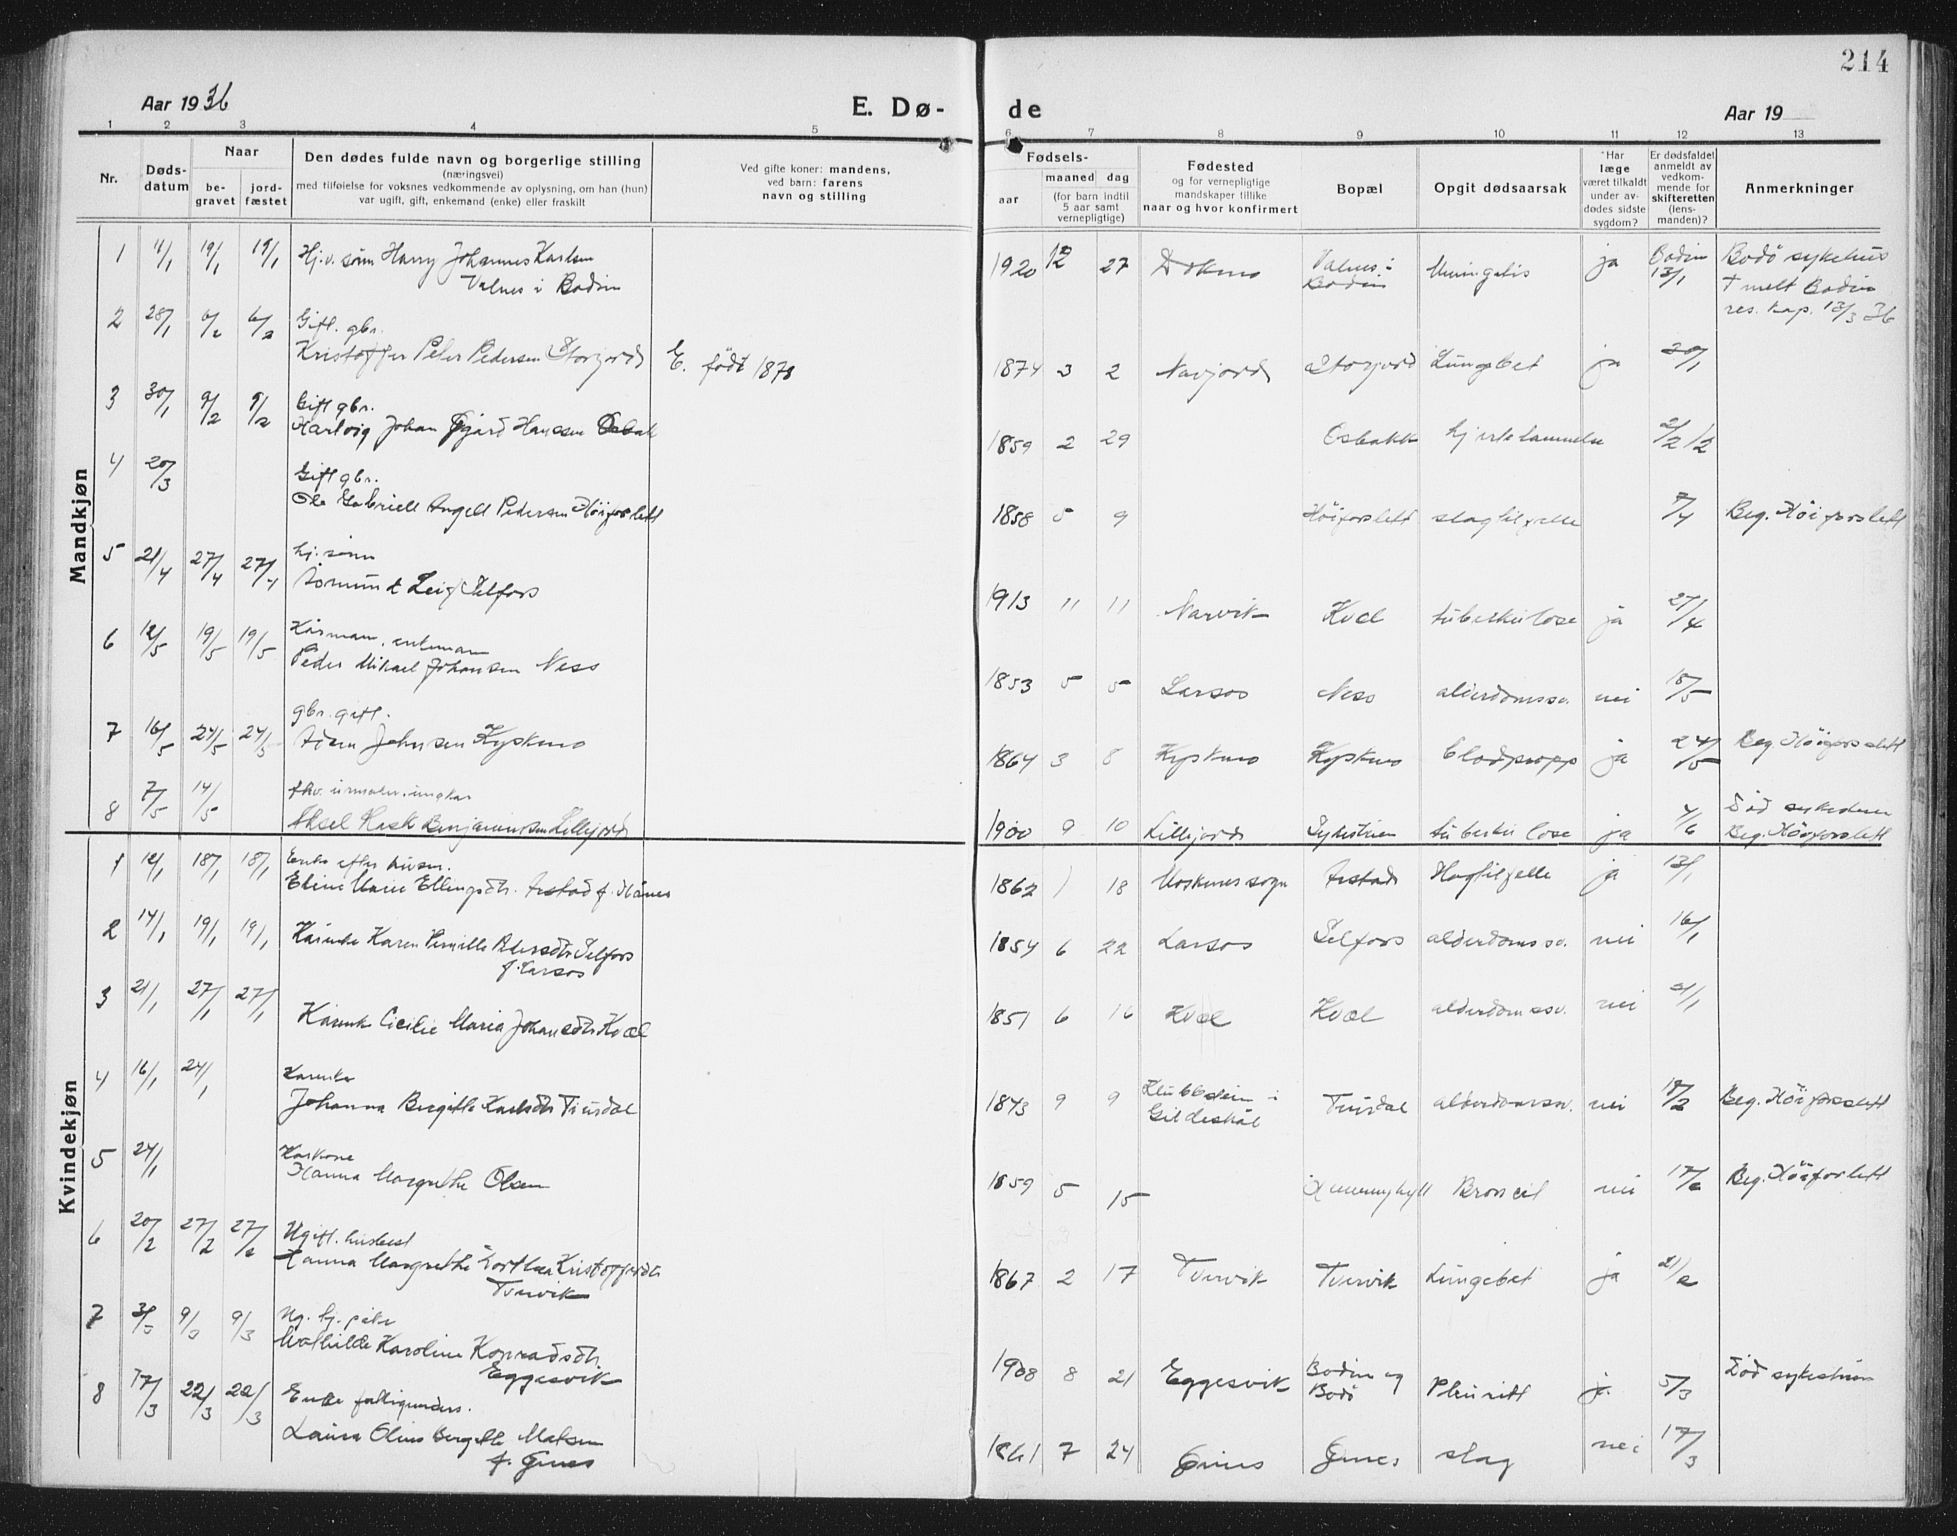 214
Aar 1936
E. Dø-
de
Aar 19
1 2 3 4 5 6 7 8 9 10 11 12 13
Nr.
Døds-
datum
Naar
be-
gravet
jord-
fæstet
Den dødes fulde navn og borgerlige stilling
(næringsvei)
med tilføielse for voksnes vedkommende av oplysning, om han (hun)
var ugift, gift, enkemand (enke) eller fraskilt
Ved gifte koner: mandens,
ved barn: farens
navn og stilling
Fødsels-
aar
maaned dag
(for barn indtil
5 aar samt
vernepligtige)
Fødested
og for vernepligtige
mandskaper tillike
naar og hvor konfirmert
Bopæl
Opgit dødsaarsak
Har
læge
været tilkaldt
under av-
dødes sidste
sygdom?
Er dødsfaldet
anmeldt av
vedkom-
mende for
skifteretten
(lens-
manden)?
Anmerkninger
Mandkjøn
1 11/1 19/1 19/1 Hj.v. sønn Harry Johannes Karlsen
Valnes i Bodin
1920 12 27 Valnes i Bodin ja Bodin 13/1 Bodø sykehus
† melt Bodin
res. kap. 12/3 36
2 28/1 6/2 6/2 Gift. gbr.
Kristoffer Peter Pedersen Storjord E. født 1878
1874 3 2 Navjord Storjord Lungebet ja 30/1
3 30/1 9/2 9/2 Gift gbr.
Hartvig Johan Hansen
1859 2 29 Osbakk hjertelammelse 2/2
4 20/3 Gift gbr.
Ole Gabriell Angell Pedersen Høiforslett
1858 5 9 Høiforslett slagtilfelle 7/4 Beg. Høiforslett
5 21/4 27/4 27/4 hj. sønn
Leif Selfors
1913 11 11 Narvik Kvæl tuberkulose ja 27/4
6 12/5 19/5 19/5 Kårmann, enkemann
Peder Mikael Johansen Ness
1853 5 5 Larsos Ness alderdomssv. nei 18/5
7 16/5 24/5 24/5 gbr. gift.
Johnsen Kyskmo
1864 3 8 Kyskmo Kyskmo blodpropp ja 24/5 Beg. Høiforslett
8 7/5 14/5 fhv. urmaker. ungkar
Aksel Benjaminsen Lillejord
1900 9 10 Lillejord Sykehuse tuberkulose ja 4/6 Død sykehuse
Beg. Høiforslett
Kvindekjøn
1 12/1 18/1 18/1 Enke efter
Eline Marie Ellingsdtr. Arstad f. Hånes
1862 1 18 Moskenes sogn Arstad Slagtilfelle ja 13/1
2 14/1 19/1 19/1 Kårenke Karen Pernille Pedersdtr. Selfors
f. Larsos
1854 6 22 Larsos Selfors alderdomssv. nei 16/1
3 21/1 27/1 27/1 Kårenk Cicilie Maria Johansdtr. Kvæl
1851 6 16 Kvæl Kvæl alderdomssv. nei 21/1
4 16/1 24/1 Kårenke
Johanna Bergitte Karlsdtr.
1873 9 9 i
Gildeskål alderdomssv. nei 18/2 Beg. Høiforslett
5 24/1 Kårkone
Hanna Margrethe Olsen
1859 5 15 nei 17/6 Beg. Høiforslett
6 20/2 27/2 27/2 Ugift.
Hanna Margrethe Dorthea Kristoffersdtr.
Tvervik
1867 2 17 Tvervik Tvervik Lungebet ja 21/2
7 3/3 9/3 9/3 Ug. hj. pike
Mathilde Karoline Konradsdtr.
Eggesvik
1908 8 21 Eggesvik Bodin og
Bodø Pleuritt ja 5/3 Død sykehus
8 17/3 22/3 22/3 Enke fattigunders.
Laura Oline Bergitte Matsen
f. Grnes
1861 7 24 slag nei 17/3